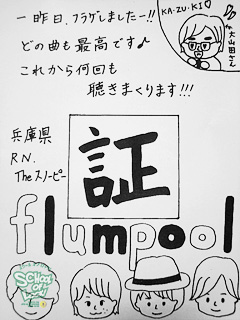 一昨日、フラゲしましたー!!
どの曲も最高です♪
これから何回も
聴きまくります!!!
KA・ZU・KI
大山田さん
兵庫県
R.N.
Theスヌーピー
証
flumpool
SCHOOL OF LOCK!